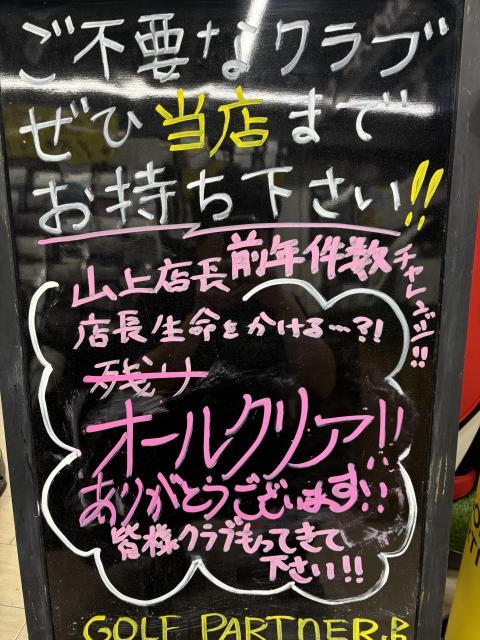 ご不要なクラブ
ぜひ当店まで
お持ち下さい!!
山上店長前年件数チャレンジ!!
店長生命をかける…?!
残り
オールクリア!!
ありがとうございます!!
皆様クラブもってきて
下さい!!
GOLF PARTNER